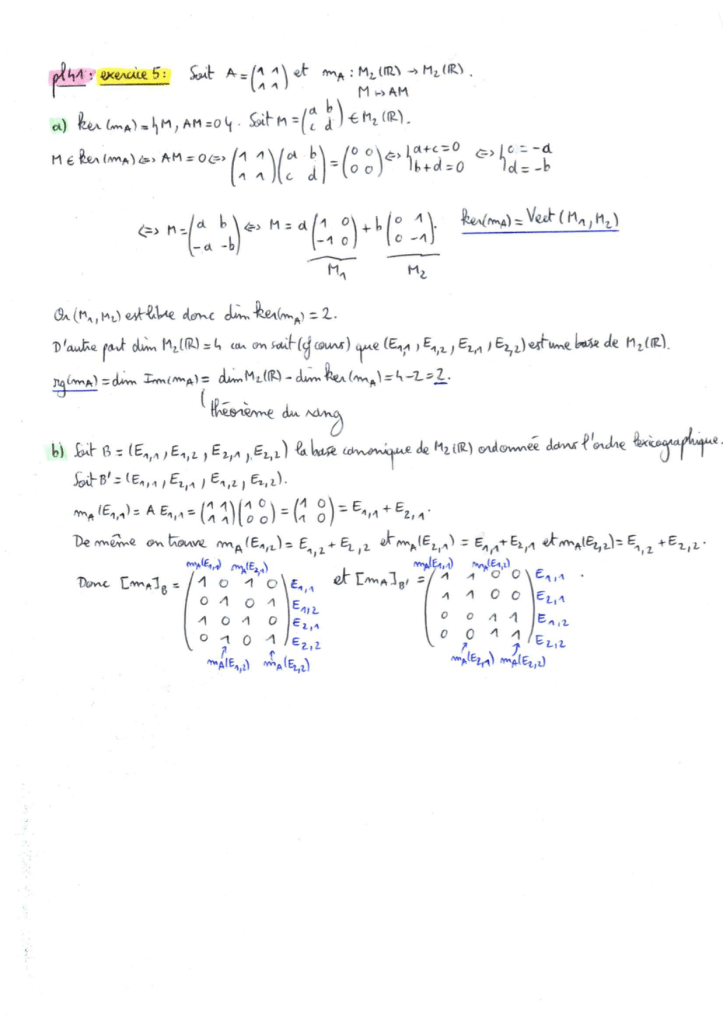 pl41 : exercice 5 : Soit A = (1 1 / 1 1) et mA : M2(IR) → M2(IR).
M ↦ AM
a) Ker(mA) = {M, AM = 0}. Soit M = (a b / c d) ∈ M2(IR).
M ∈ Ker(mA) ⇔ AM = 0 ⇔ (1 1 / 1 1)(a b / c d) = (0 0 / 0 0) ⇔ {a+c=0 / b+d=0 ⇔ {c = -a / d = -b
⇔ M = (a b / -a -b) ⇔ M = a (1 0 / -1 0) + b (0 1 / 0 -1). Ker(mA) = Vect(M1, M2)
M1 M2
Or (M1, M2) est libre donc dim Ker(mA) = 2.
D'autre part dim M2(IR) = 4 car on sait (cf cours) que (E1,1, E1,2, E2,1, E2,2) est une base de M2(IR).
rg(mA) = dim Im(mA) = dim M2(IR) - dim Ker(mA) = 4 - 2 = 2.
théorème du rang
b) Soit B = (E1,1, E1,2, E2,1, E2,2) la base canonique de M2(IR) ordonnée dans l'ordre lexicographique.
Soit B' = (E1,1, E2,1, E1,2, E2,2).
mA(E1,1) = A E1,1 = (1 1 / 1 1)(1 0 / 0 0) = (1 0 / 1 0) = E1,1 + E2,1.
De même on trouve mA(E1,2) = E1,2 + E2,2 et mA(E2,1) = E1,1 + E2,1 et mA(E2,2) = E1,2 + E2,2.
mA(E1,1) mA(E2,1) mA(E1,1) mA(E1,2)
Donc [mA]B = (1 0 1 0) E1,1 et [mA]B' = (1 1 0 0) E1,1 .
0 1 0 1 E1,2 1 1 0 0 E2,1
1 0 1 0 E2,1 0 0 1 1 E1,2
0 1 0 1 E2,2 0 0 1 1 E2,2
mA(E1,2) mA(E2,2) mA(E2,1) mA(E2,2)